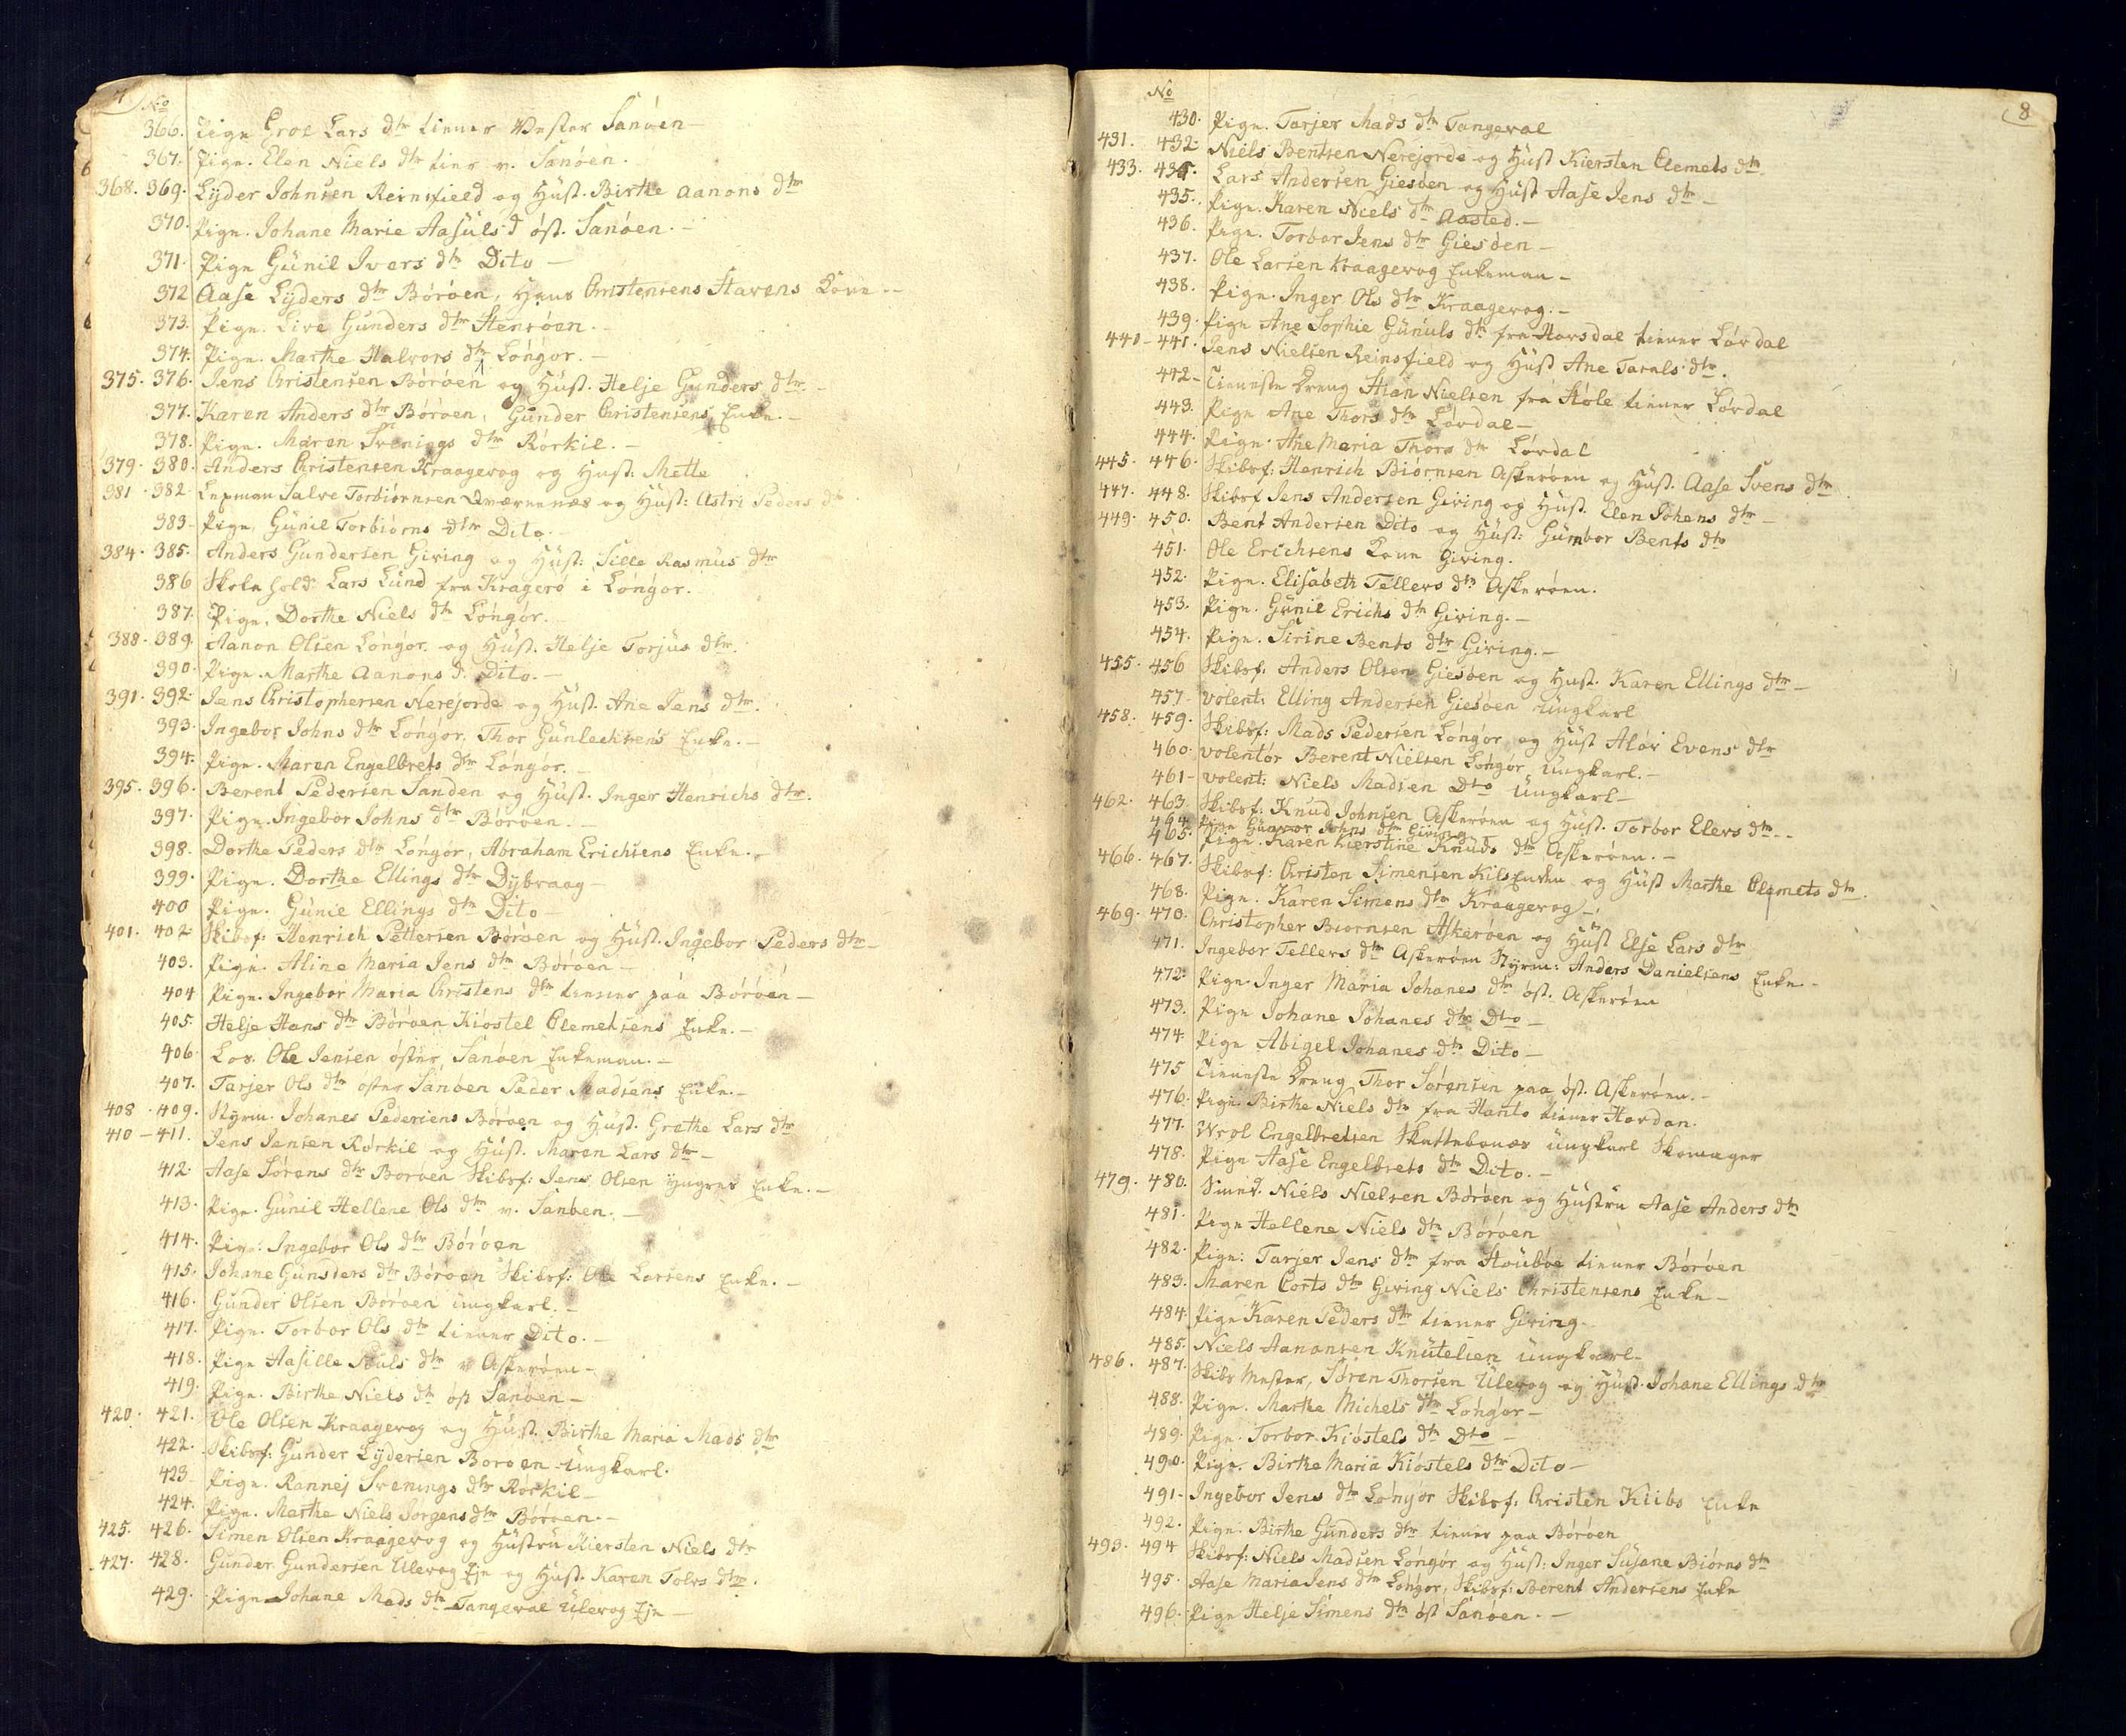 7
No
366. Pige Groe Lars dtr tiener Vester Sanöen
367. Pige. Elen Niels dtr tien v. Sanöen.
368. 369. Lyder Johnsen Reinsfield og Hust. Birthe Aanons dtr
370. Pige. Johane Marie Aasuls d öst. Sanöen.
371. Pige Gunil Ivers dtr Dito
372 Aase Lyders dtr Böröen, Hans Christensens Havens Kone
373. Pige. Live Gunders dtr Stensöen.
374. Pige. Marthe Halvors dtr Löngör.
375. 376. Jens Christensen Böröen og Hust. Helje Gunders dtr
377. Karen Anders dtr Böröen, Gunder Christensens Enke.
378. Pige. Maren Svenings dtr Rörkil.
379. 380. Anders Christensen Kraagevog og Hust: Mette
381. 382 Salve Torbiörnsen Qværnenæs og Hust: Astri Peders d
383. Pige, Gunil Torbiörns dtr Dito.
384. 385. Anders Gundersen Giving og Hust: Sille Rasmus dtr
386 Skole hold: Lars Lund fra Kragerö i Löngör.
387. Pige. Dorthe Niels dtr Löngör.
388. 389. Aanon Olsen Löngör og Hust. Helje Torjus dtr.
390. Pige. Marthe Aanons d. Dito.
391. 392 Jens Christophersen Nerejorde og Hust. Ane Jens dtr.
393. Ingebor Johns dtr Löngör, Thor Gunlechsens Enke.
394. Pige. Maren Engelbrets dtr Löngör.
395. 396. Berent Pedersen Sanden og Hust. Inger Henrichs dtr.
397. Pige. Ingebor Johns dtr Böröen.
398. Dorthe Peders dtr Löngör, Abraham Erichsens Enke.
399. Pige. Dorthe Ellings dtr Dybvaag
400 Pige. Gunil Ellings dtr Dito
401. 402. Skibsf: Henrich Pettersen Böröen og Hust. Ingebor Peders dtr
403. Pige. Aline Maria Jens dtr Böröen
404 Pige. Ingebor Maria Christens dtr tiener paa Böröen
405. Helje Hans dtr Böröen Kiostel Clemetsens Enke.
406. Los. Ole Jensen öster Sanöen Enkeman.
407. Tarjer Ols dtr öster Sanöen Peder Madsens Enke.
408. 409. Styrm. Johanes Pedersens Böröen og Hust. Grethe Lars dtr
410 - 411. Jens Jensen Rörkil og Hust. Maren Lars dtr
412. Aase Sörens dtr Böröen Skibsf: Jens Olsen Yngres Enke.
413. Pige. Gunil Hellene Ols dtr v. Sanöen.
414. Pige: Ingebor Ols dtr Böröen
415. Johane Gunsders dtr Böröen Skibsf: Ole Larsens Enke.
416. Gunder Olsen Böröen ungkarl.
417. Pige. Torbor Ols dtr tiener Dito.
418. Pige Aasille Pouls dtr v Askeröen
419. Pige. Birthe Niels dtr öst Sanöen
420. 421. Ole Olsen Kraagevog og Hust. Birthe Maria Mads dtr
422. Skibsf: Gunder Lydersen Böröen ungkarl.
423 Pige. Rannej Svenings dtr Rörkil
424. Pige. Marthe Niels Jörgens dtr Böröen.
425. 426. Simen Olsen Kraagevog og Hustru Kiersten Niels dtr
427. 428. Gunder Gundersen Ulevog Eje og Hust. Karen Tolvs dtr.
429. Pige Johane Mads dtr Tangeval Ulevog Eje
No
8
430. Pige. Tarjer Mads dtr Tangeval
431. 432. Niels Bentsen Nerejorde og Hust Kiersten Clemets dtr
433. 434. Lars Andersen Giesöen og Hust Aase Jens dtr
435. Pige. Karen Niels dtr Aasted.
436. Pige. Torbor Jens dtr Giesöen
437. Ole Larsen Kraagevog Enkeman
438. Pige. Inger Ols dtr Kraagevog.
439. Pige Ane Sophie Gunuls dtr fra Havsdal tiener Lövdal
440 - 441. Jens Nielsen Reinsfield og Hust Ane Taralsdtr.
442 - Tieneste Dreng Stian Nielsen fra Hole tiener Lövdal
443. Pige Ane Thors dtr Lövdal
444. Pige. Ane Maria Thors dtr Lövdal
445. 446. Skibsf: Henrich Biörnsen Askeröen og Hust. Aase Svens dtr
447. 448. Skibsf Jens Andersen Giving og Hust. Elen Johens dtr
449. 450. Bent Andersen Dito og Hust: Gumbor Bents dtr
451. Ole Erichsens Kone Giving.
452. Pige. Elisabeth Tellevs dtr Askeröen.
453. Pige. Gunil Erichs dtr Giving.
454. Pige. Sirine Bents dtr Giving.
455. 456 Skibsf: Anders Olsen Giesöen og Hust. Karen Ellings dtr
457 volent: Elling Andersen Giesöen ungkarl
458. 459. Skibsf: Mads Pedersen Löngör og Hust Alöv Evens dtr
460. volentör Berent Nielsen Löngör ungkarl.
461 - volent: Niels Madsen Dto ungkarl
462. 463. Skibsf: Knud Johnsen Askeröen og Hust. Torbor Elevs dtr
464 Pige Gunvor Johns dtr Giving
465. Pige. Karen Kierstine Knuds dtr Askeröen.
466. 467. Skibsf: Christen Simensen Kilsenden og Hust Marthe Clemets dtr.
468. Pige. Karen Simens dtr Kraagevog
469. 470. Christopher Biornsen Askeröen og Hust Else Lars dtr
471. Ingebor Tellevs dtr Askeröen Styrm: Anders Danielsens Enke.
472. Pige Inger Maria Johanes dtr öst. Askeröen
473. Pige Johane Johanes dtr Dto
474 Pige Abigel Johanes dtr Dito
475 Tieneste Dreng Thor Sörensen paa öst. Askeröen.
476. Pige. Birthe Niels dtr fra Hanto tiener Hordan.
477. Wrol Engelbretsen Skattebonæs ungkarl Skomager
478. Pige Aase Engelbrets dtr Dito.
479. 480. Smed. Niels Nielsen Böröen og Hustru Aase Anders dtr
481. Pige Hellene Niels dtr Böröen
482. Pige: Tarjer Jens dtr fra Houböe tiener Böröen
483. Maren Corts dtr Giving Niels Christensens Enke
484. Pige Karen Peders dtr tiener Giving.
485. Niels Aanonsen Knutelien ungkarl
486. 487. Skibs Mester, Sören Thorsen Ulevog og Hust. Johane Ellings dtr
488. Pige. Marthe Michels dtr Löngör
489. Pige. Torbor Kiöstels dtr Dto
490. Pige. Birthe Maria Kiöstels dtr Dito
491 - Ingebor Jens dtr Löngör Skibsf: Christen Kiibs Enke
492. Pige. Birthe Gunders dtr tiener paa Böröen
493. 494 Skibsf: Niels Madsen Löngör og Hust: Inger Susane Biörns dtr
495. Aase Maria Jens dtr Löngör, Skibsf: Berent Andersens Enke
496. Pige Helje Simens dtr öst Sanöen.